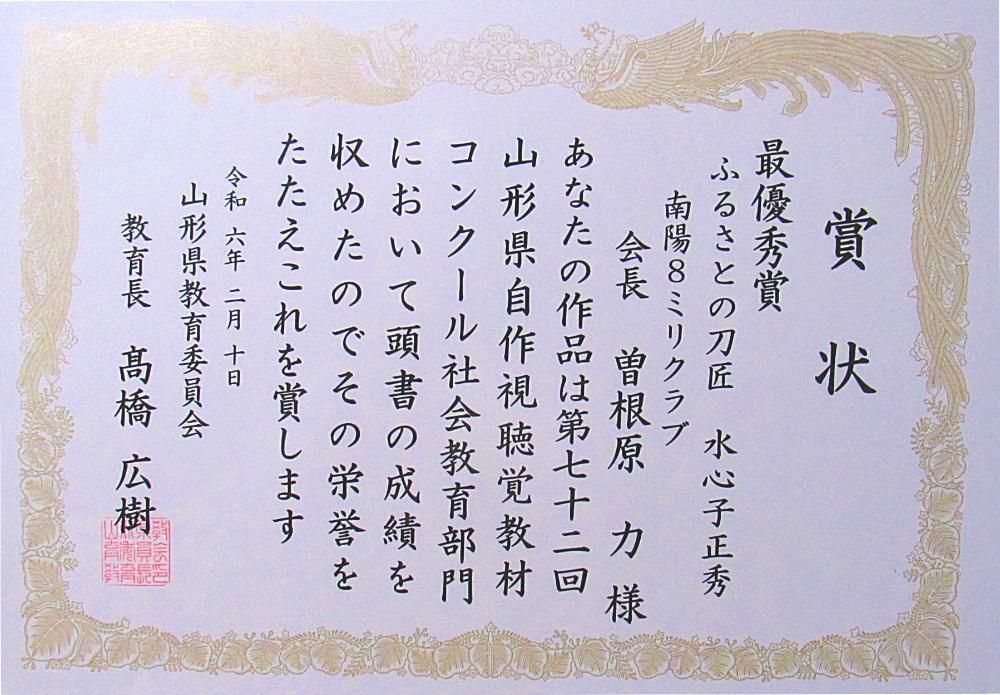 賞状
最優秀賞
ふるさとの刀匠 水心子正秀
南陽８ミリクラブ
会長 曽根原 力 様
あなたの作品は第七十二回
山形県自作視聴覚教材
コンクール社会教育部門
において頭書の成績を
収めたのでその栄誉を
たたえこれを賞します
令和 六年 二月 十日
山形県教育委員会
教育長 髙橋 広樹